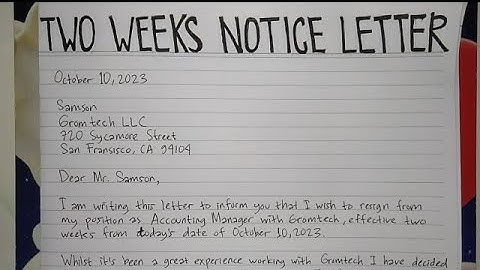 TWO WEEKS NOTICE LETTER
October 10, 2023
Samson
Gromtech LLC
720 Sycamore Street
San Fransisco, CA 94104
Dear Mr. Samson,
I am writing this letter to inform you that I wish to resign from
my position as Accounting Manager with Gromtech, effective two
weeks from today's date of October 10, 2023.
Whilst it's been a great experience working with Gromtech I have decided